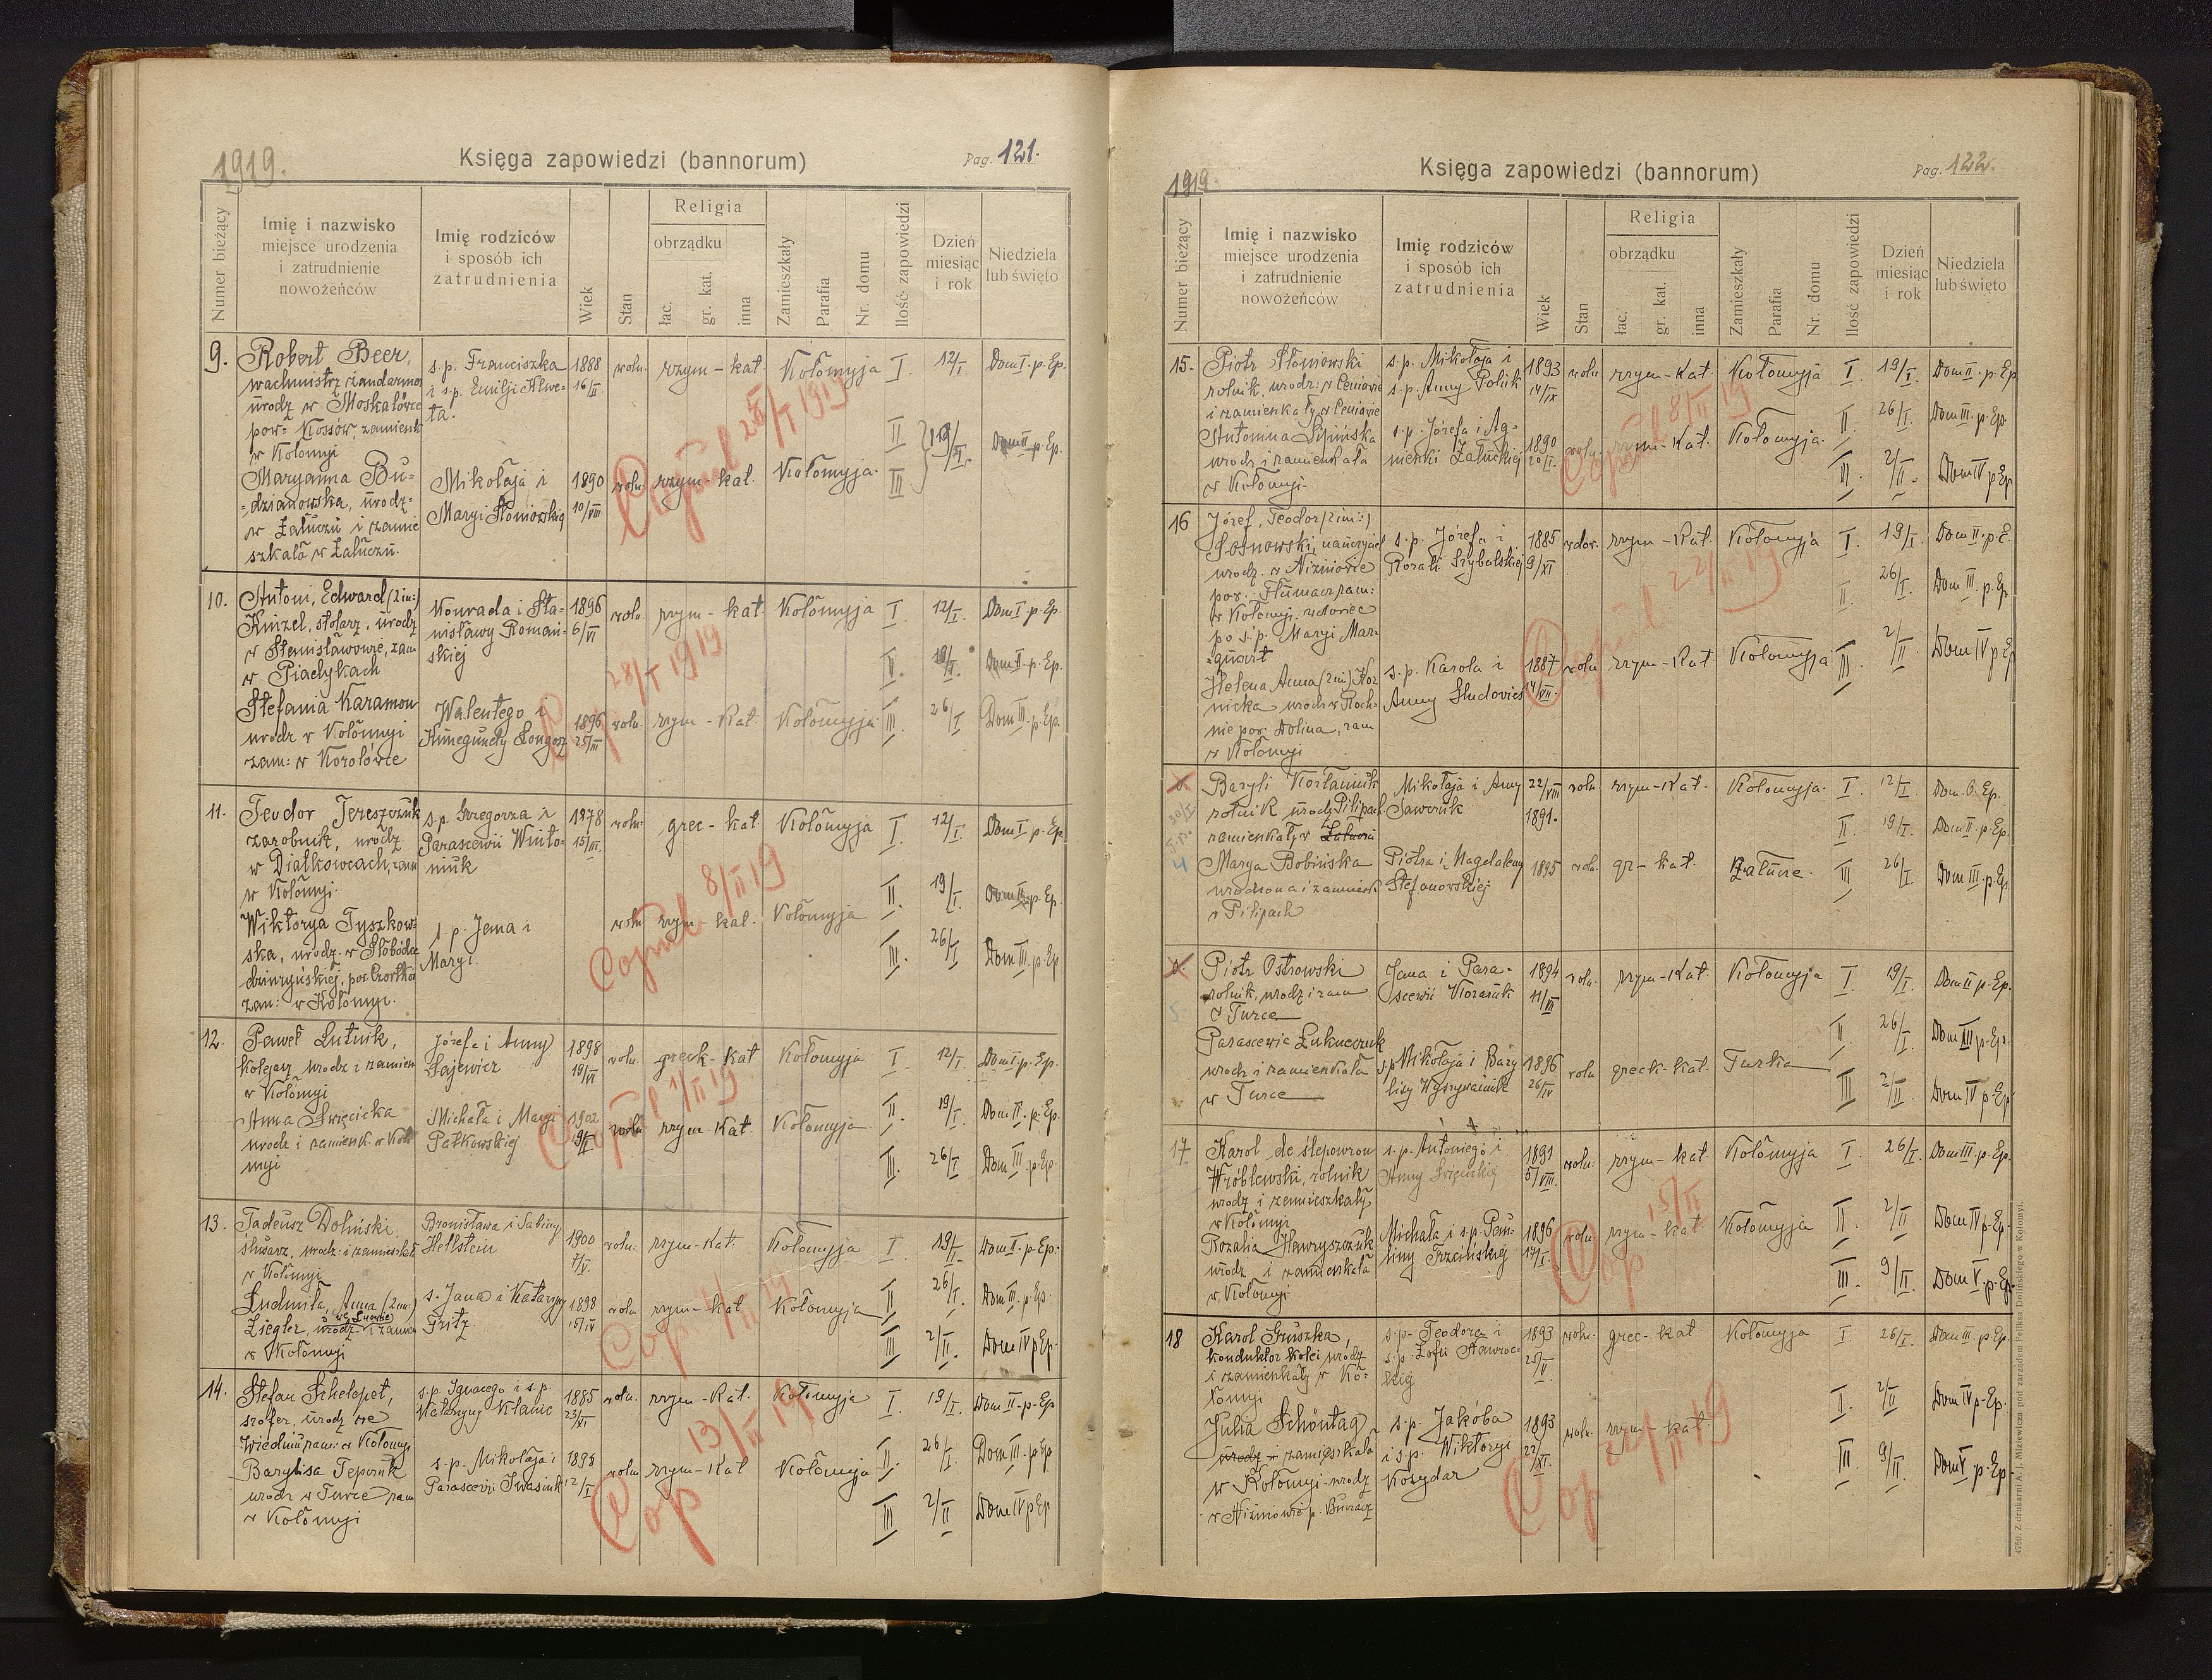 1919.
Księga zapowiedzi (bannorum)
Pag. 121.
Numer bieżący
Imię i nazwisko
miejsce urodzenia
i zatrudnienie
nowożeńców
Imię rodziców
i sposób ich
zatrudnienia
Wiek
Stan
Religia
obrządku
łac.
gr. kat.
inna
Zamieszkały
Parafia
Nr. domu
Ilość zapowiedzi
Dzień
miesiąc
i rok
Niedziela
lub święto
9.
Robert Beer,
wachmistrz żandarmo
urodz w Moskalówce
pow= Kossów, zamieszk
w Kołomyi
s.p. Franciszka
i s.p. Emilji Klwe=
ta.
1888
16/II
woln.
rzym - kat
Kołomyja
I.
12/I.
Dom I. p. Ep.
II
III
19/I.
Dom II. p. Ep.
Maryanna Bu=
=dzianowska, urodz=
w Załuczu i zamie
szkała w Załuczu.
Mikołaja i
Maryi Słoniowskiej
1890
10/VIII
woln.
rzym- kat.
Kołomyja.
Copul 25/I 1919
10.
Antoni, Edward (2 im:)
Kinzel, stolarz, urodz
w Stanisławowie, zam
w Piadykach
Konrada i Sta=
nisławy Roman=
skiej
1896
6/VI
woln.
rzym - kat
Kołomyja
I.
12/I.
Dom I. p. Ep.
II.
19/I.
Dom II. p. Ep.
Stefania Karamon
urodz w Kołomyi
zam: w Korolówce
Walentego i
Kunegundy Longosz
1896
25/III
woln.
rzym - Kat.
Kołomyja
III.
26/I
Dom III. p. Ep.
Cop. 28/I 1919
11.
Teodor Jereszczuk
zarobnik, urodz
w Diatkowcach, zam
w Kołomyi.
s.p. Grzegorza i
Parascewii Winto=
niuk
1878
15/III.
woln.
grec - kat.
Kołomyja
I.
12/I.
Dom I. p. Ep.
II.
19/I.
Dom II. p. Ep.
Wiktorya Tyszkow=
ska, urodz. w Słobódce
dżuryńskiej, pow Czortków
zam: w Kołomyi.
s. p. Jana i
Maryi
woln
rzym - kat.
Kołomyja
III.
26/I
Dom III. p. Ep.
Copul 8/II 19
12.
Paweł Lutnik,
kolejarz urodz i zamien
w Kołomyi
Józefa i Anny
Gajewicz
1898
19/VI
woln.
greck- Kat
Kołomyja
I
12/I.
Dom I. p. Ep.
Anna Swięcicka
urodz i zamieszk. w Koło
myi
Michała i Maryi
Pałkowskiej
1902
woln
rzym- Kat.
Kołomyja
II.
19/I.
Dom II. p. Ep.
III.
26/I
Dom III. p. Ep.
Copul 1/II 19
13.
Tadeusz Doliński,
ślusarz, urodz. i zamieszkał
w Kołomyi
Bronisława i Sabiny
Hellstein
1900
7/V.
woln.
rzym- Kat.
Kołomyja
I.
19/I.
Dom II. p. Ep.
II
26/I.
Dom III. p. Ep.
Ludmiła, Anna (2 im.)
we Lwowie
Ziegler, urodz. i zamie
w Kołomyi
s. Jana i Katarzyny
Fritz.
1898
15/IV
woln
rzym - Kat
Kołomyja
III
2/II.
Dom IV p Ep.
Cop
14.
Stefan Schelpet,
szofer, urodz we
Wiedniu zam: w Kołomyi
s.p. Ignacego i s.p.
Katarzyny Klanic
1885
23/XI
woln.
rzym - Kat.
Kołomyja
I.
19/I.
Dom II. p. Ep
II.
26/I.
Dom III. p Ep
Barylisa Tepcruk
urodz w Turce zam
w Kołomyi
s.p. Mikołaja i
Parascewii Iwasiuk
1898
12/I
woln
rzym - Kat
Kołomyja
III
2/II
Dom IV p Ep
Cop 13/II 19
1919.
Księga zapowiedzi (bannorum)
Pag. 122.
Numer bieżący
Imię i nazwisko
miejsce urodzenia
i zatrudnienie
nowożeńców
Imię rodziców
i sposób ich
zatrudnienia
Wiek
Stan
Religia
obrządku
łac.
gr. kat.
inna
Zamieszkały
Parafia
Nr. domu
Ilość zapowiedzi
Dzień
miesiąc
i rok
Niedziela
lub święto
15.
Piotr Słoniowski
rolnik, urodz: w Ceniawie
i zamieszkały w Ceniawie
s. p. Mikołaja i
s. p. Anny Polnik
1893
14/IX
woln.
rzym - Kat.
Kołomyja
I.
19/I.
Dom II. p. Ep.
II.
26/I.
Dom III. p. Ep.
Antonina Lipińska
urodz i zamieszkała
w Kołomyi.
s. p. Józefa i Ag=
nieszki Załuckiej
1890
20/I.
woln.
rzym - Kat.
Kołomyja.
III.
2/II.
Dom IV p Ep
Copul 8/II 19
16
Józef, Teodor (2 im:)
Sosnowski, nauczyciel
urodz. w Niżniowie
pow. Tłumacz zam:
w Kołomyi, wdowiec
po s.p. Maryi Mar=
=quart
s. p. Józefa i
Rozalii Szybalskiej
1885
9/XI
wdow.
rzym - Kat.
Kołomyja
I.
19/I.
Dom II. p. E.
II.
26/I.
Dom III. p. Ep
Helena Anna (2 im) Kor
nicka urodz w Roch=
nie pow. Dolina, zam
w Kołomyi
s. p. Karola i
Anny Sludovics
1887
14/VII.
woln
rzym - Kat
Kołomyja
III
2/II.
Dom IV p Ep
Copul 22/II 19
Baryli Kosłaniuk
rolnik urodz Pilipach
zamieszkały w Załuczu
Mikołaja i Anny
Sawczuk
22/VIII
1891.
woln
rzym - Kat.
Kołomyja.
I.
12/I
Dom. I. Ep.
II.
19/I.
Dom II. p. Ep.
4
Marya Bobińska
urodzona i zamieszk
w Pilipach
Piotra i Magdaleny
Stefanowskiej
1895
woln.
gr - kat.
Załucze.
III
26/I.
Dom III. p. Ep.
Piotr Ostrowski
rolnik, urodz i zam
w Turce
Jana i Para=
scewii Kozaruk
1894
11/VII
woln.
rzym - Kat.
Kołomyja
I.
19/I.
Dom II. p. Ep.
II
26/I.
Dom III p. Ep.
5
Parascewia Łukneczuk
urodz i zamieszkała
w Turce
s.p Mikołaja i Bazy
lisy Wyszywaniuk
1896
26/IV
woln
greck- kat.
Turka
III
2/II.
Dom IV p Ep.
17
Karol de Ślepowron
Wróblewski, rolnik
urodz i zamieszkały
w Kołomyi
s. p. Antoniego i
Anny Święcickiej
1891
5/VIII.
woln:
rzym - kat
Kołomyja
I.
26/I.
Dom III. p. Ep.
II.
2/II
Dom IV p. Ep.
Rozalia Hawryszczuk
urodz i zamieszkała
w Kołomyi
Michała i s.p. Pau=
liny Trzcińskiej
1896
17/I.
woln
rzym - kat.
Kołomyja
III.
9/II.
Dom V. p. Ep.
Cop 15/II
18
Karol Gruszka,
konduktor kolei urodz
i zamieszkały w Ko=
łomyi
s. p. Teodora i
s. p. Zofii Nawroc=
kiej
1893
25/V.
woln.
grec - kat
Kołomyja
I.
26/I.
Dom III. p. Ep.
I.
2/II
Dom IV p. Ep.
Julia Schöntag
urodz i zamieszkała
w Kołomyi urodz
w Niżniowie p. Buczacz
s. p. Jakóba
i s.p. Wiktoryi
Kosydar
1893
22/XI.
woln.
rzym - kat.
III
9/II
Dom V. p. Ep.
Cop 22/II 19
4750. Z drukarni A. J. Miziewicza pod zarządem Feliksa Dolińskiego w Kołomyi.